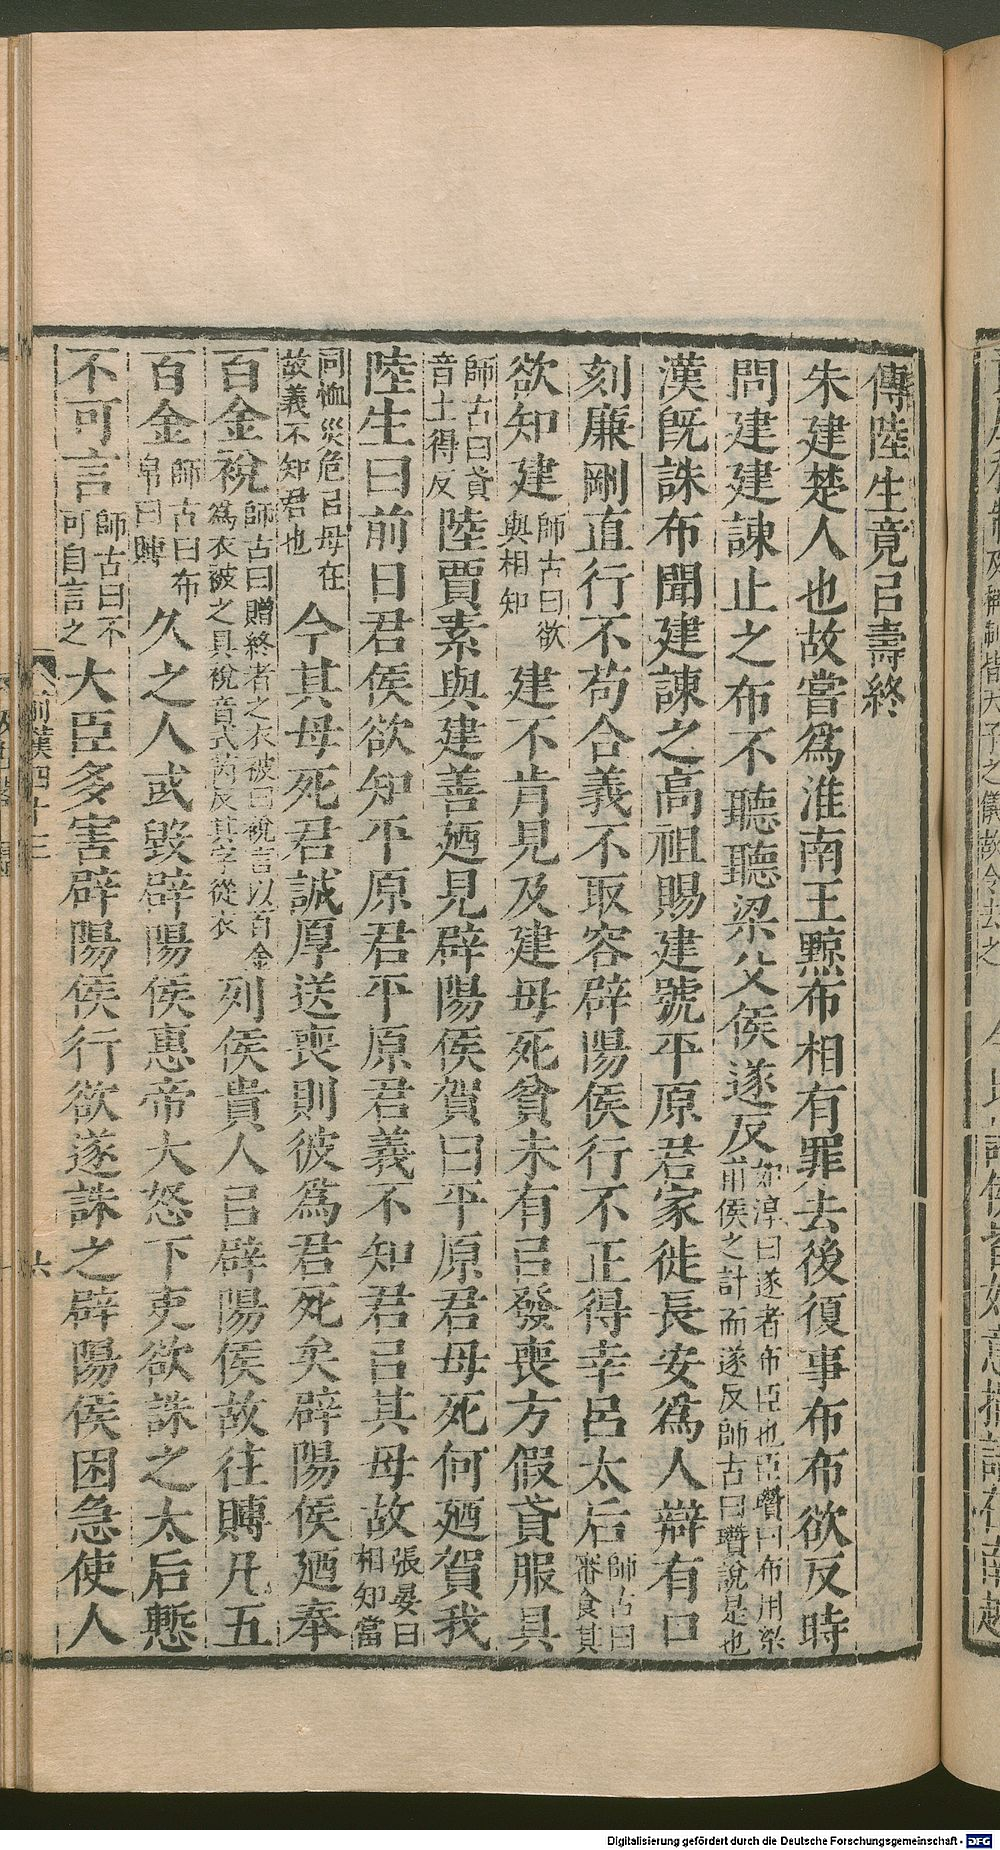 傳陸生竟㠯壽終
朱建楚人也故嘗爲淮南王黥布相有罪去後復事布布欲反時
問建建諫止之布不聽聽梁父侯遂反如淳曰遂者布臣也臣瓚曰布用梁父侯之計而遂反師古曰瓚說是也
漢旣誅布聞建諫之高祖賜建號平原君家徙長安爲人辯有口
刻廉剛直行不苟合義不取容辟陽侯行不正得幸呂太后師古曰審食其
欲知建師古曰欲與相知建不肯見及建母死貧未有㠯發喪方假貣服具
師古曰貣音土得反陸賈素與建善廼見辟陽侯賀曰平原君母死何廼賀我
陸生曰前日君侯欲知平原君平原君義不知君㠯其母故張晏曰相知當
同恤災危㠯母在故義不知君也今其母死君誠厚送喪則彼爲君死矣辟陽侯廼奉
百金裞師古曰贈終者之衣被曰裞言以百金爲衣被之具裞音式芮反其字從衣列侯貴人㠯辟陽侯故往賻凡五
百金師古曰布帛曰賻久之人或毀辟陽侯惠帝大怒下吏欲誅之太后慙
不可言師古曰不可自言之大臣多害辟陽侯行欲遂誅之辟陽侯困急使人
前漢四十三
六
Digitalisierung gefördert durch die Deutsche Forschungsgemeinschaft - DFG